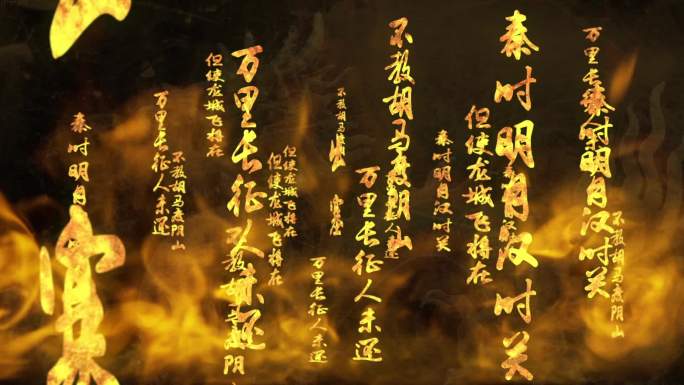 不教胡马度阴山
秦时明月汉时关
万里长
秦时明月汉时关
但使龙城飞将在
秦时明月汉时关
不教胡马度阴山
万里长征人未还
不教胡马
万里长征人未还
但使龙城飞将在
但使龙城飞将在
万里长征人未还
不教胡马度阴
但使龙城飞将在
不教胡马度阴山
万里长征人未还
秦时明月